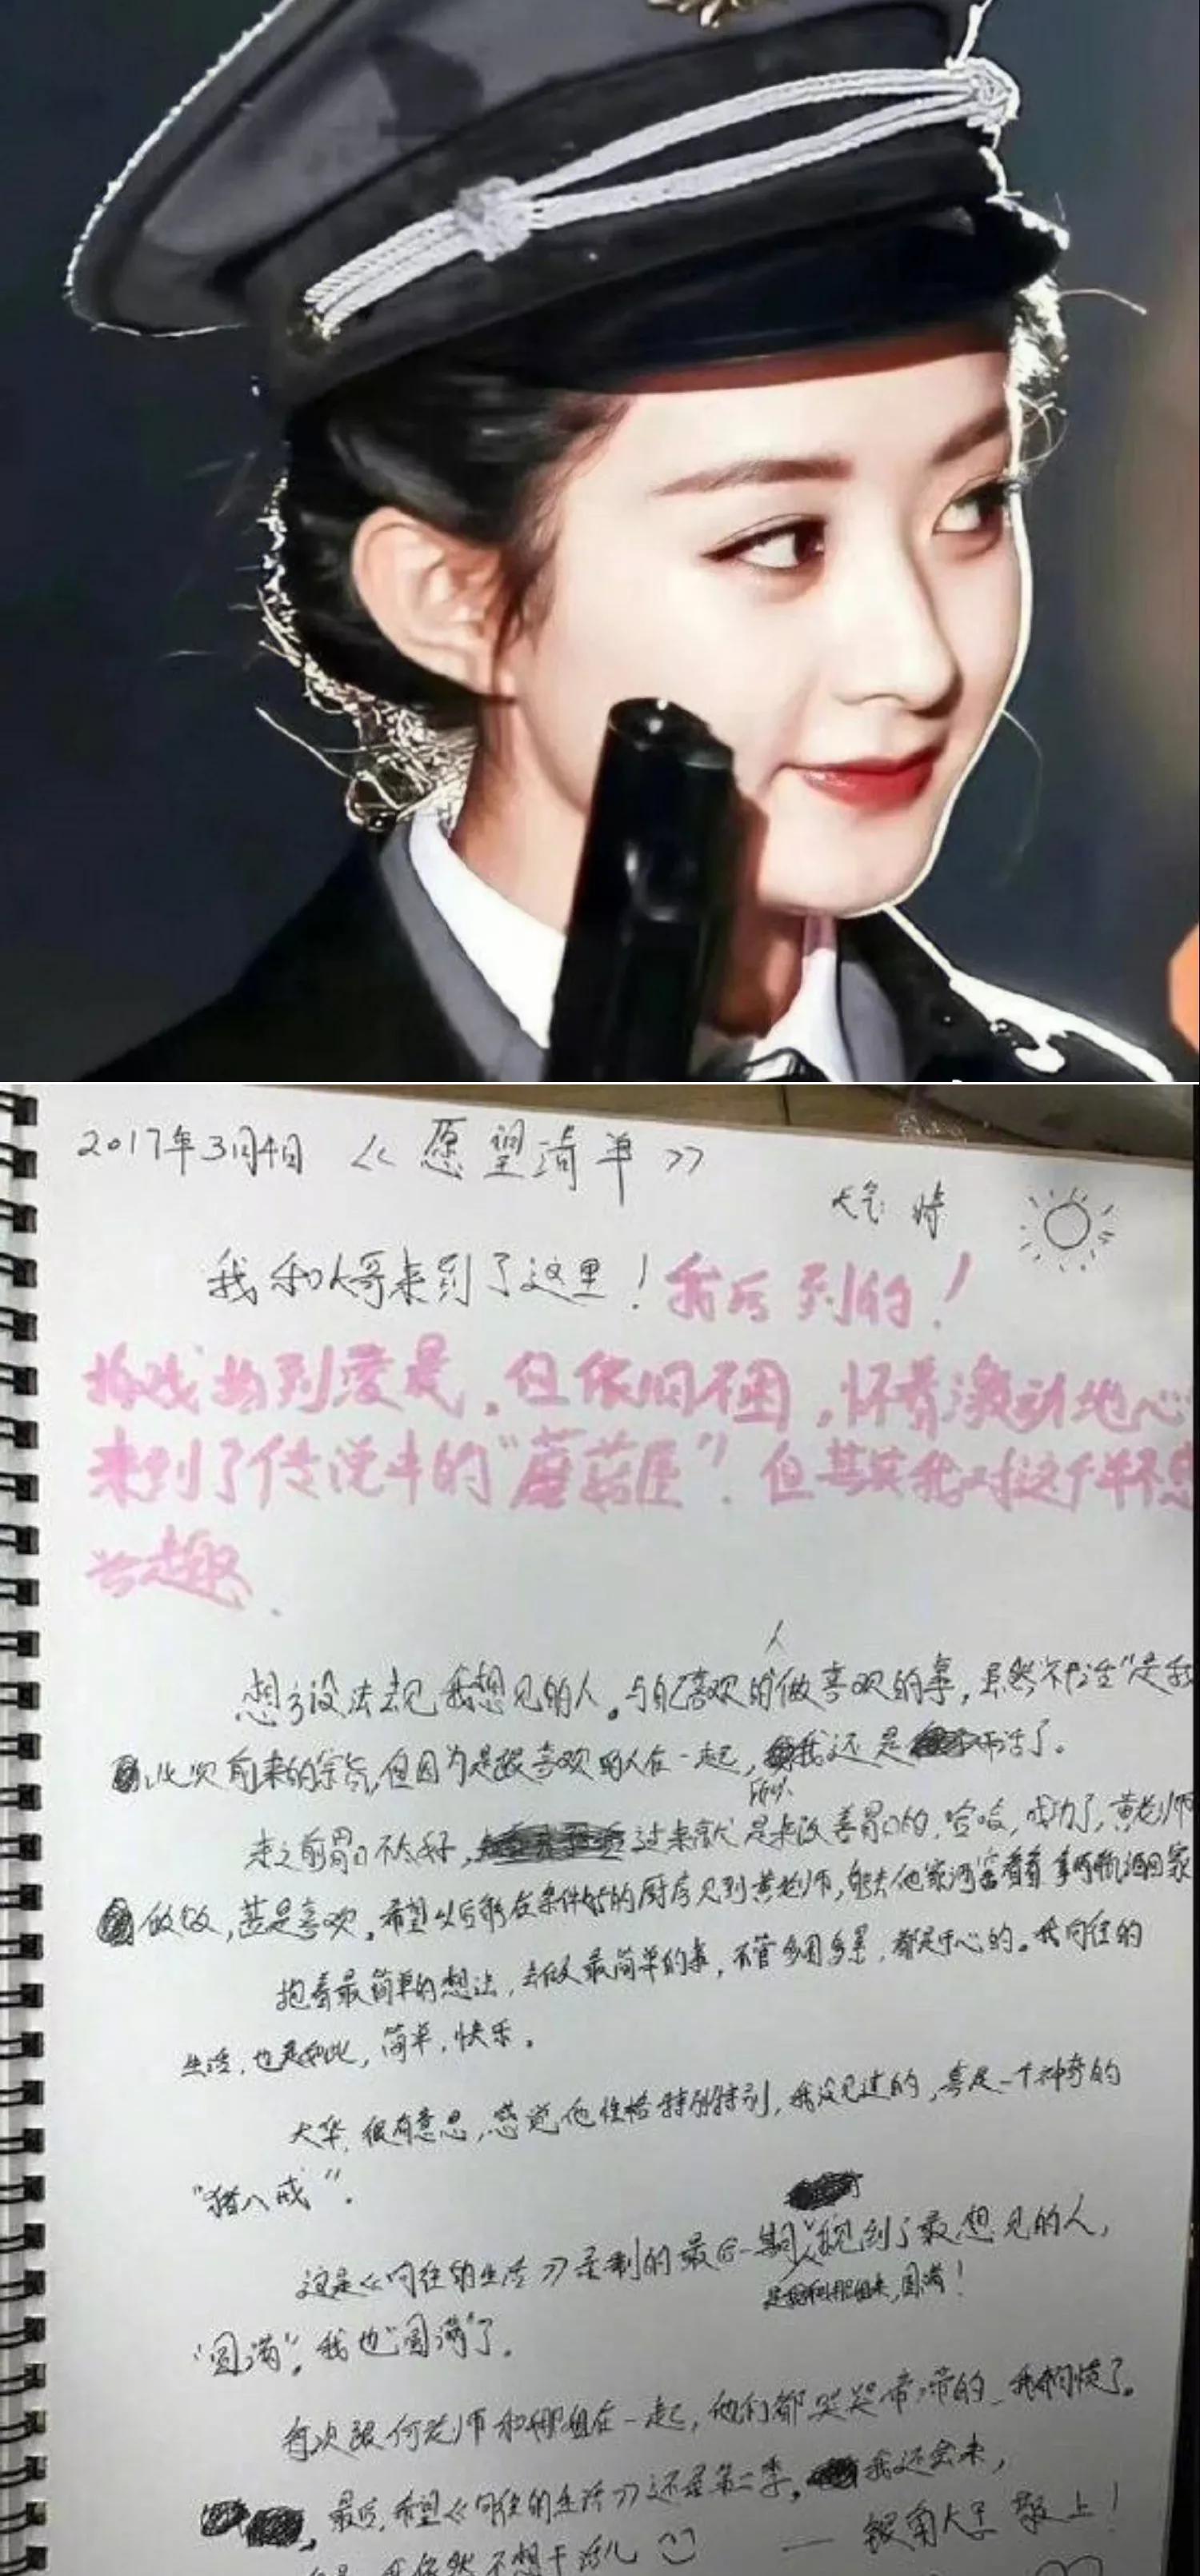 2017年3月4日 《愿望清单》
天气 晴
我和大哥来到了这里！我后到的！
拍戏拍到凌晨，但依旧不困，怀着激动地心
来到了传说中的“蘑菇屋”.但其实我对这个并不感
兴趣.
人
想方设法去见我想见的人。与自己喜欢的做喜欢的事，虽然“不干活”是我
此次前来的宗旨，但因为是跟喜欢的人在一起，我还是干活了。
所以
来之前胃口不太好，过来就是来改善胃口的，哈哈，成功了，黄老师
做饭，甚是喜欢。希望以后能在条件好的厨房见到黄老师，能去他家酒窖看看拿两瓶酒回家
抱着最简单的想法，去做最简单的事，不管多困多累，都是开心的。我向往的
生活，也是如此，简单，快乐。
大华，很有意思，感觉他性格特别特别，我没见过的，真是一个神奇的
“猪八戒”.
这是《向往的生活》录制的最后一期，我见到了最想见的人，
圆满！
“圆满”。我也“圆满”了。
每次跟何老师和娜姐在一起，他们都哭哭啼啼的
最后，希望《向往的生活》还是第二季，我还会来，
我依然不想干活儿
—— 银角大王 敬上！